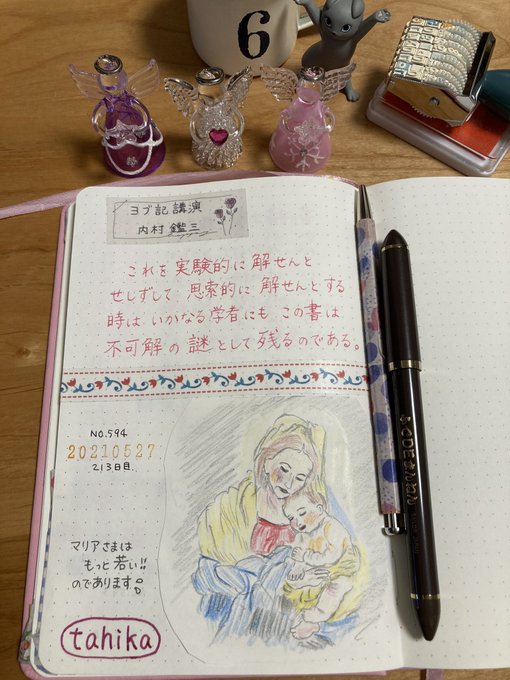 6
ヨブ記講演
内村 鑑三
これを実験的に解せんと
せしずして 思索的に 解せんとする
時は いかなる学者にも この書は
不可解の謎として残るのである。
NO.594
20210527
213日目.
マリアさまは
もっと若い!!
のであります。
tahika